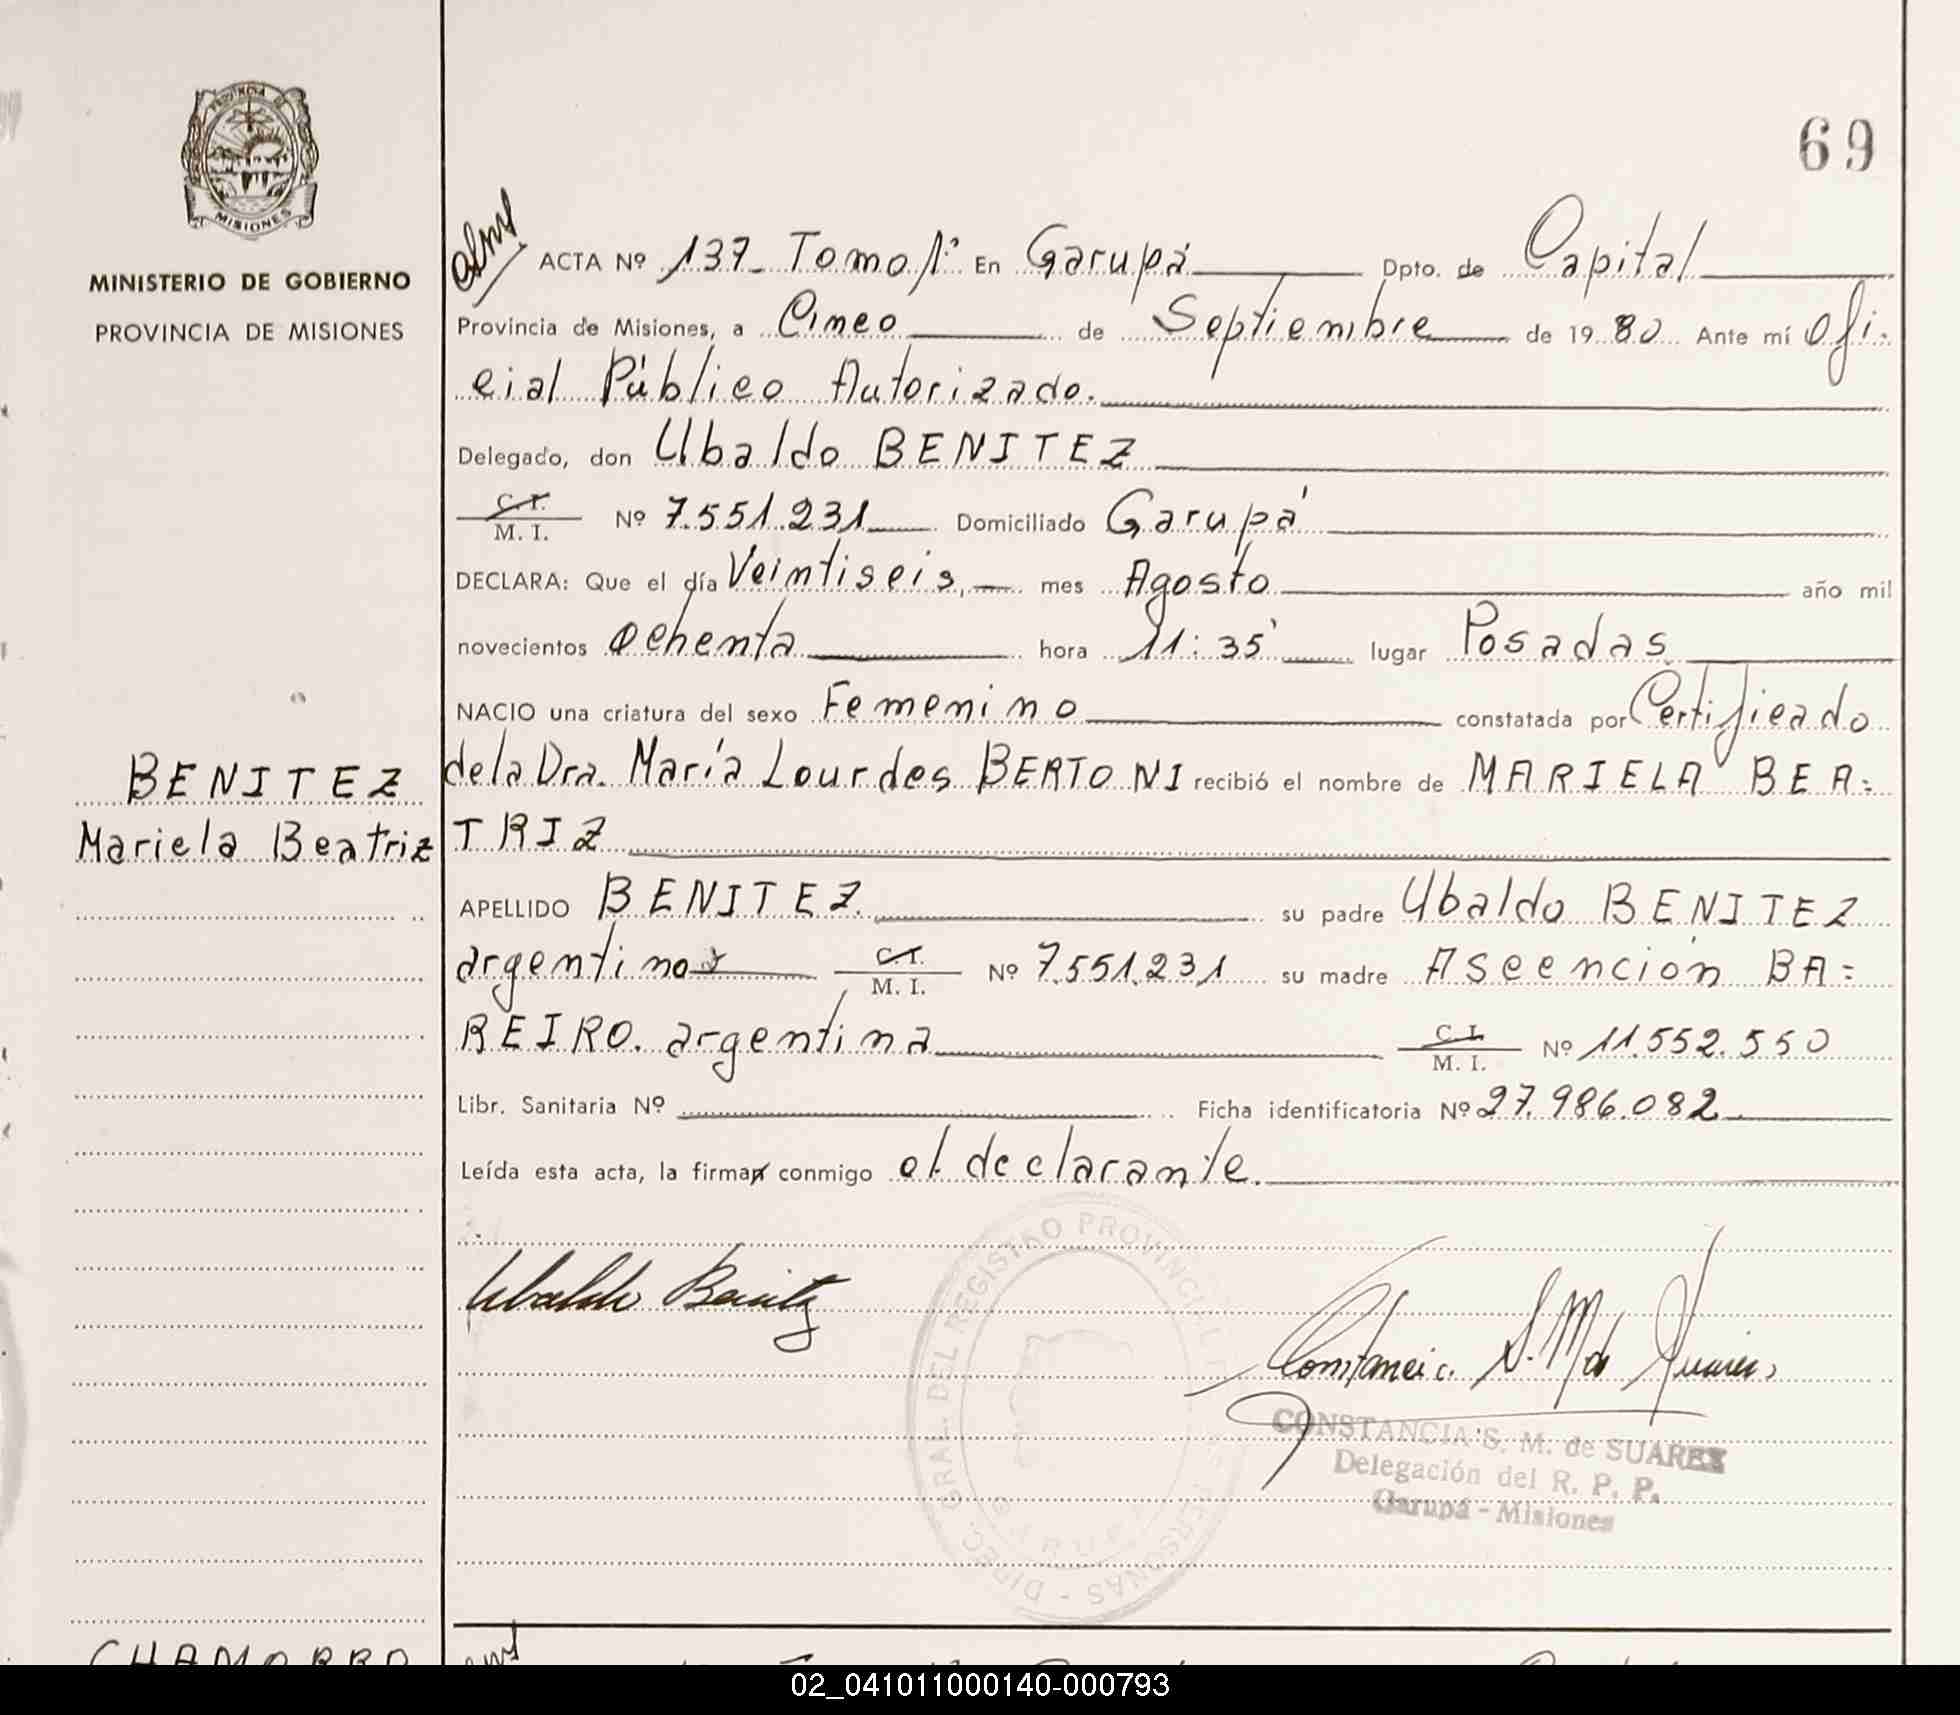 PROVINCIA DE
MISIONES
MINISTERIO DE GOBIERNO
PROVINCIA DE MISIONES
69
ACTA Nº 137 Tomo 1º En Garupá Dpto. de Capital
Provincia de Misiones, a Cinco de Septiembre de 1980 Ante mí Ofi-
cial Público Autorizado.
Delegado, don Ubaldo BENITEZ
C. I.
M. I. Nº 7.551.231 Domiciliado Garupá
DECLARA: Que el día Veintiseis, mes Agosto año mil
novecientos Ochenta hora 11:35' lugar Posadas
NACIO una criatura del sexo Femenino constatada por Certificado
BENITEZ
Mariela Beatriz
de la Dra. María Lourdes BERTONI recibió el nombre de MARIELA BEA=
TRIZ
APELLIDO BENITEZ su padre Ubaldo BENITEZ
argentino C. I.
M. I. Nº 7.551.231 su madre Ascención BA=
REIRO. argentina C. I.
M. I. Nº 11.552.550
Libr. Sanitaria Nº Ficha identificatoria Nº 27.986.082
Leída esta acta, la firman conmigo el declarante.
Ubaldo Benitez
Constancia S. M. de Suarez
DIREC. GRAL. DEL REGISTRO PROVINCIAL DE LAS PERSONAS -
GARUPA
CONSTANCIA S. M. de SUAREZ
Delegación del R. P. P.
Garupá - Misiones
CHAMORRO
02_041011000140-000793